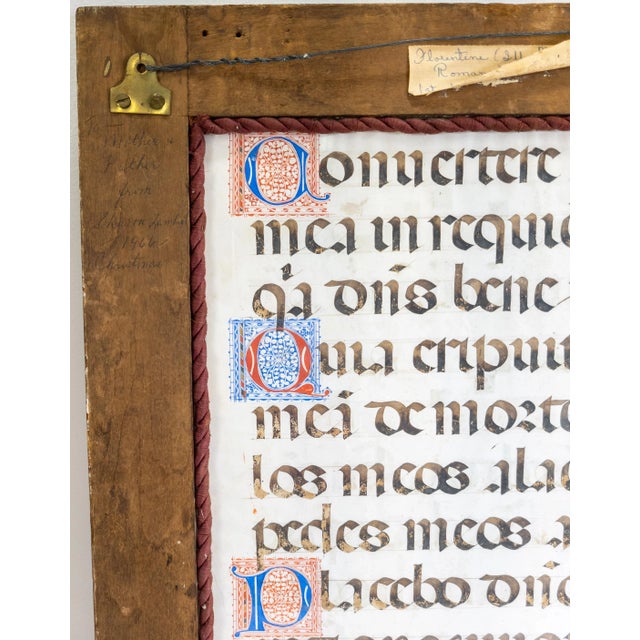 Florentine (211
Roman
lot
To Mother &
Father
from
1966
Christmas
Conuertere
mea in requie
qͣ dn̄s bene
Quia eripuit
mei de morte
los meos a la
pedes meos a
Placebo dn̄o